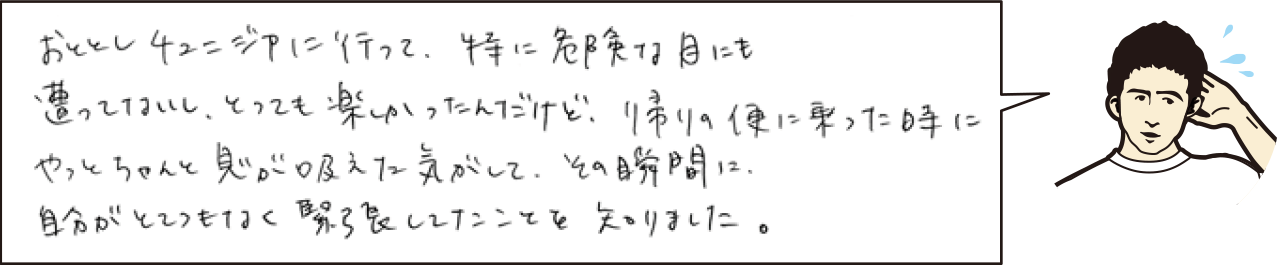 おととしチュニジアに行って、特に危険な目にも
遭ってないし、とっても楽しかったんだけど、帰りの便に乗った時に
やっとちゃんと息が吸えた気がして、その瞬間に、
自分がとてつもなく緊張してたことを知りました。